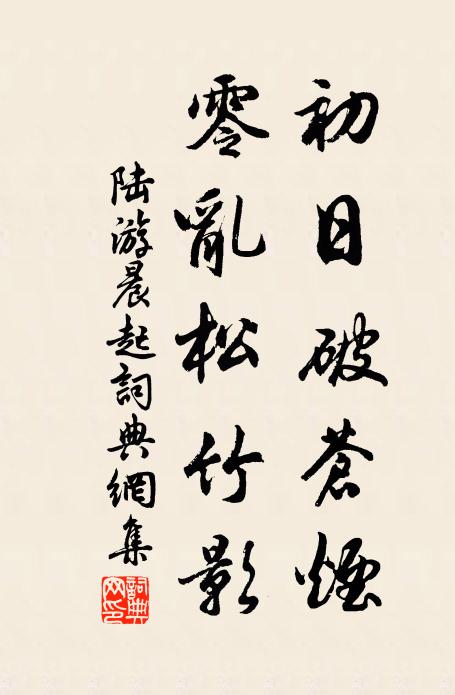 初日破蒼煙
零亂松竹影
陸游晨起詞典網集
詞典網印